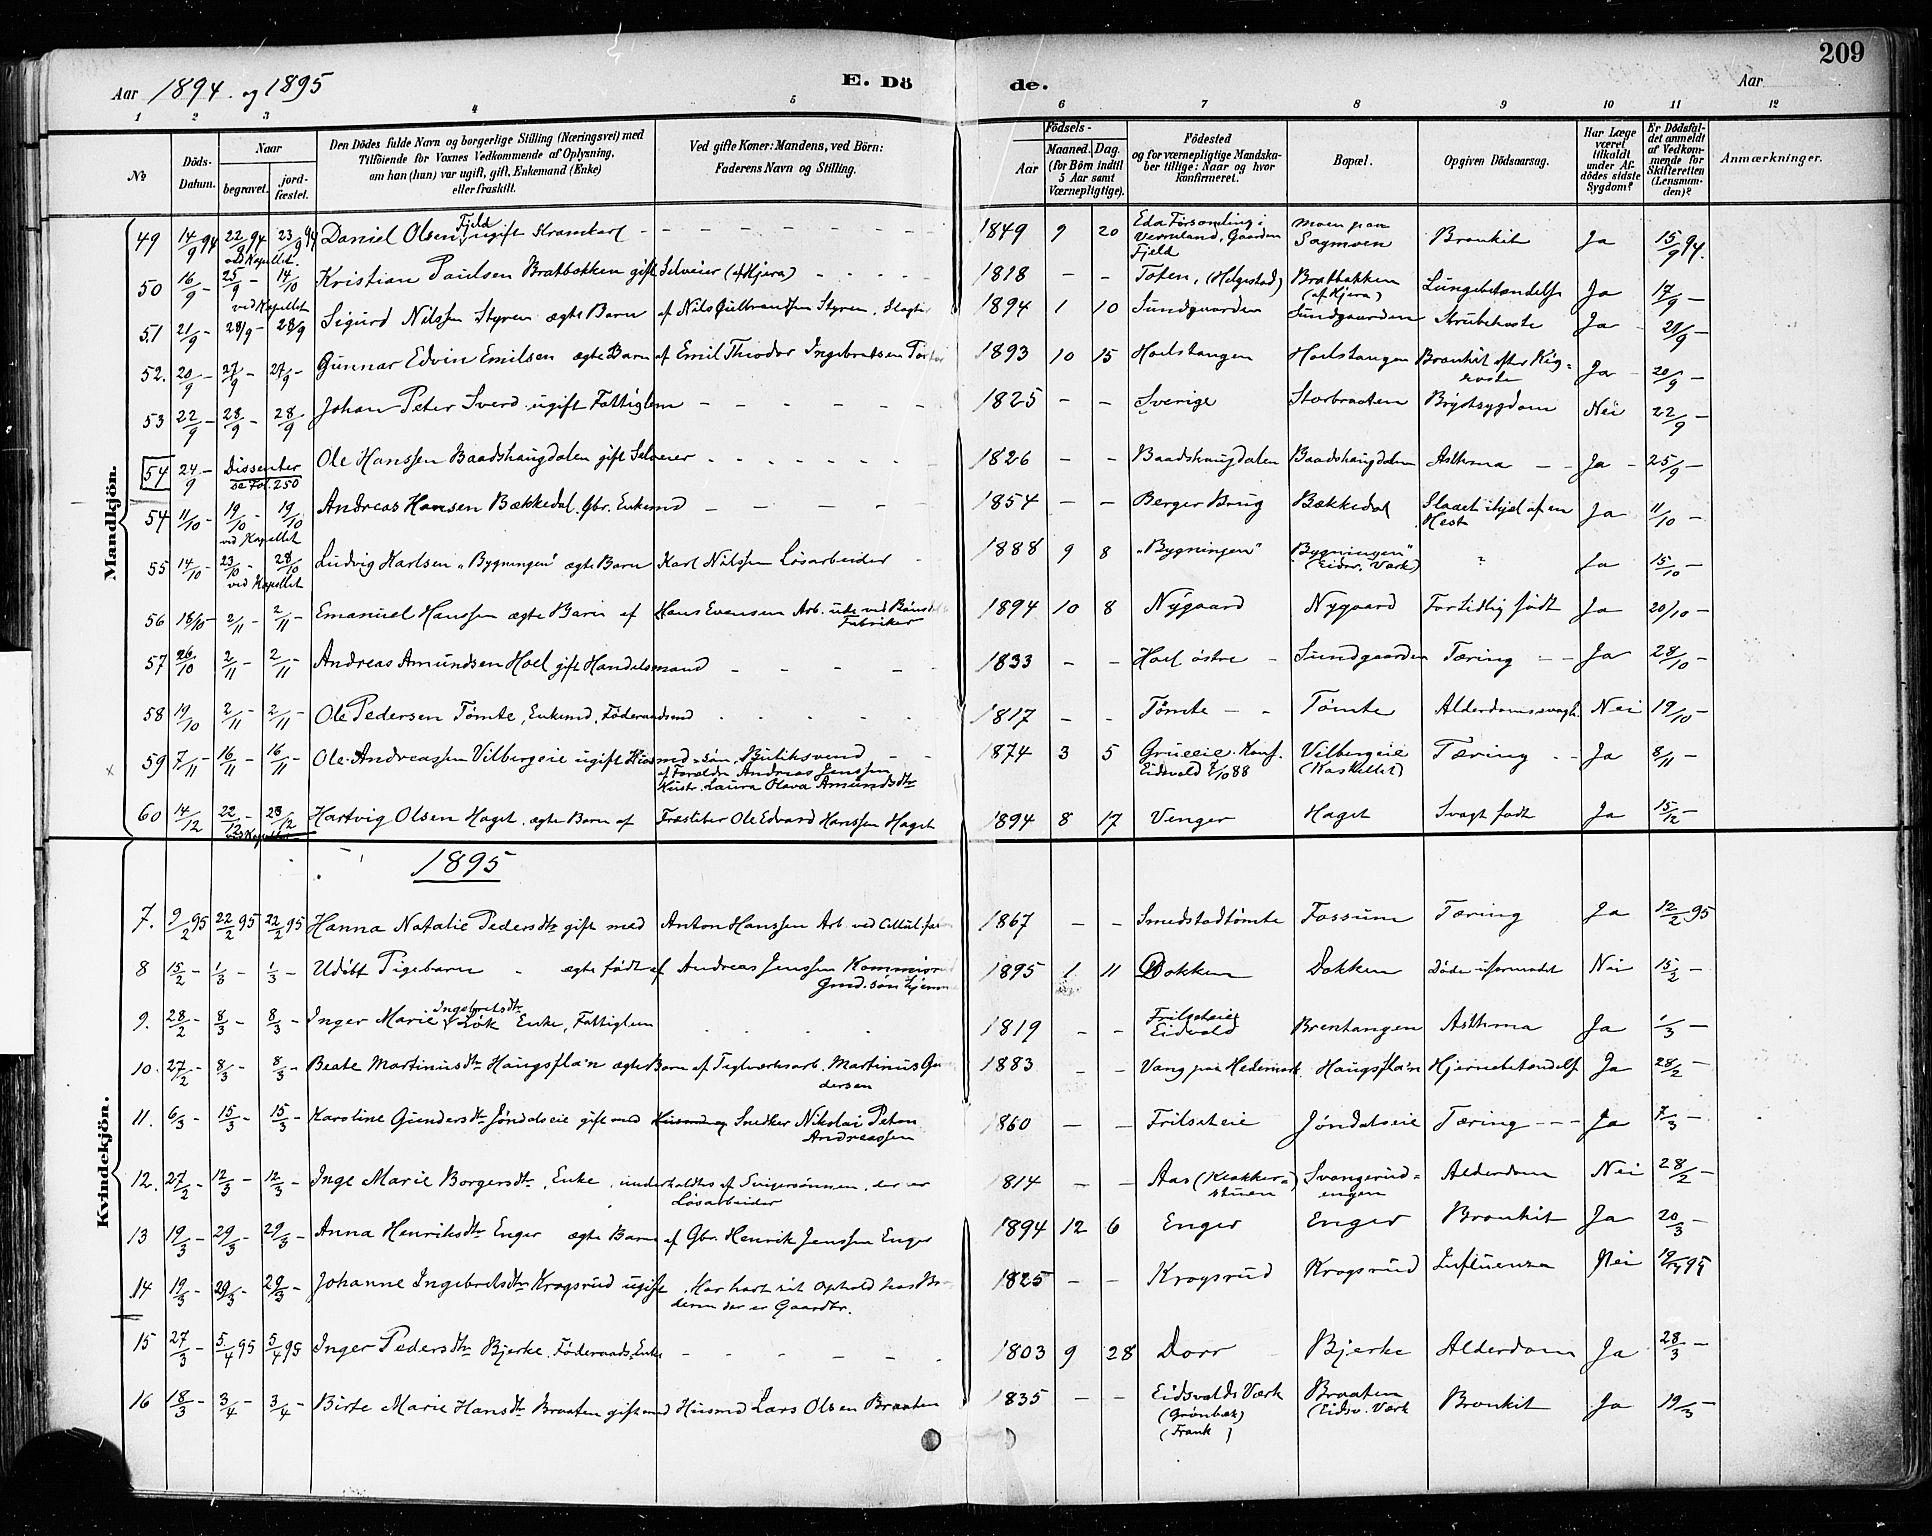 209
Aar 1894. og 1895
E. Dö
de.
Aar
1 2 3 4 5 6 7 8 9 10 11 12
No
Döds-Datum.
Naar
begravet.
jord-fæstet.
Den Dödes fulde Navn og borgerlige Stilling (Næringsvei) med
Tilföiende for Voxnes Vedkommende af Oplysning,
om han (hun) var ugift, gift, Enkemand (Enke)
eller fraskilt.
Ved gifte Koner: Mandens, ved Börn:
Faderens Navn og Stilling.
Födsels-
Aar
Maaned. Dag.
(for Börn indtil
5 Aar samt
Værnepligtige).
Födested
og for værnepligtige Mandska-
ber tillige: Naar og hvor
konfirmeret.
Bopæl.
Opgiven Dödsaarsag.
Har Læge
været
tilkaldt
under Af-
dödes sidste
Sygdom?
Er Dödsfal-
det anmeldt
af Vedkom-
mende for
Skifteretten
(Lensman-
den)?
Anmærkninger.
Mandkjön.
49 14/9 94 22/9 94 ved Kapellet 23/9 94 Daniel Olsen Fjeld, ugift Kramkarl 1849 9 20 Eda Forsamling i Vermeland, Gaarden Fjeld Moen paa Sagmoen Bronkit Ja 15/9 94.
50 16/9 25/9 ved Kapellet 14/10 Kristian Paulsen Bratbakken gift Selveier (af Hjera) 1818 Toten, (Helgestad) Bratbakken (af Hjera) Lungebetændelse Ja 17/9
51 21/9 28/9 28/9 Sigurd Nilssen Styren ægte Barn af Nils Gulbrandsen Styren, Slagter 1894 1 10 Sundgaarden Sundgaarden Strubehoste Ja 21/9
52. 20/9 27/9 27/9 Gunnar Edvin Emilsen ægte Barn af Emil Theodor Ingebretsen 1893 10 15 Hoelstangen Hoelstangen Bronkit efter Kighoste Ja 20/9
53 22/9 28/9 28/9 Johan Peter Sverd ugift Fattiglem 1825 Sverige Storbraaten Brystsygdom Nei 22/9
54 24/9 Dissenter se Fol. 250 Ole Hanssen Baadshaugdalen gift Selveier 1826 Baadshaugdalen Baadshaugdalen Asthma Ja 25/9
54 11/10 19/10 ved Kapellet 19/10 Andreas Hansen Bækkedal. Gbr. Enkemd 1854 Berger Brug Bækkedal Slaaet ihjel af en Hest Ja 11/10
55 14/10 23/10 ved Kapellet 28/10 Ludvig Karlsen "Bygningen" ægte Barn Karl Nilssen Løsarbeider 1888 9 8 "Bygningen" "Bygningen" (Eidsv. Værk) " Ja 15/10
56 18/10 2/11 2/11 Emanuel Hanssen ægte Barn af Hans Evensen Arb. ude ved Fabriker 1894 10 8 Nygaard Nygaard For tidlig født Ja 20/10
57 26/10 2/11 2/11 Andreas Amundsen Hoel gift Handelsmand 1833 Hoel østre Sundgaarden Tæring Ja 28/10
58 19/10 2/11 2/11 Ole Pedersen Tømte, Enkemd, Føderaadsmd 1817 Tømte Tømte Alderdomssvagh. Nei 19/10
59 7/11 16/11 16/11 Ole Andreassen Vilbergeie ugift Husmd.-søn, Butiksvend af Forældre Andreas Jenssen Hustr. Laura Olava Amundsdtr 1874 3 5 Grueeie. Konf. Eidsvold 2/10 88 Vilbergeie (Kaskillet) Tæring Ja 8/11
60 14/12 22/12 ved Kapellet 28/12 Hartvig Olsen Haget ægte Barn af Træsliber Ole Edvard Hanssen Haget 1894 8 17 Venger Haget Svagt født Ja 15/12
1895
Kvindekjön.
7. 9/2 95 22/2 95 22/2 95 Hanna Natalie Pedersdtr gift med Anton Hanssen Arb. ved Cellul. 1867 Smedstadtømte Fossum Tæring Ja 12/2 95
8 15/2 1/3 1/3 Udøbt Pigebarn ægte født af Andreas Jenssen 1895 1 11 Dokken Dokken Døde uformodet Nei 15/2
9. 28/2 8/3 8/3 Inger Marie Ingebretsdtr Løk Enke, Fattiglem 1819 Frilseteie Eidsvold Brentangen Asthma Ja 1/3
10. 27/2 8/3 8/3 Beate Martinusdtr Haugsfla'n ægte Barn af Teglværksarb. Martinus Gudersen 1883 Vang paa Hedemark. Haugsfla'n Hjernebetændelse Ja 28/2
11. 6/3 15/3 15/3 Karoline Gundersdtr Jøndalseie gift med Husmd og Snedker Nikolai Peton Andreassen 1860 Frilseteie Jøndalseie Tæring Ja 7/3
12. 27/2 12/3 12/3 Inge Marie Borgersdtr, Enke, underholdtes af Svigersønnen, der er Løsarbeider 1814 Aas (Klokkerstuen) Svangerudengen Alderdom Nei 28/2
13 19/3 29/3 29/3 Anna Henriksdtr Enger ægte Barn af Gbr. Henrik Jenssen Enger 1894 12 6 Enger Enger Bronkit Ja 20/3
14 19/3 29/3 29/3 Johanne Ingebretsdtr Krogsrud ugift. Har havt sit Ophold hos Broderen der er Gaardbr. 1825 Krogsrud Krogsrud Influenza Nei 95
15 27/3 5/4 95 5/4 95 Inger Pedersdtr Bjerke. Føderaads Enke 1803 9 28 Dorr Bjerke Alderdom Ja 28/3
16 18/3 3/4 3/4 Birte Marie Hansdtr Braaten gift med Husmd Lars Olsen Braaten 1835 Eidsvolds Værk (Grønbæk) (Frank) Braaten (Eidsv. Værk Bronkit Ja 19/3